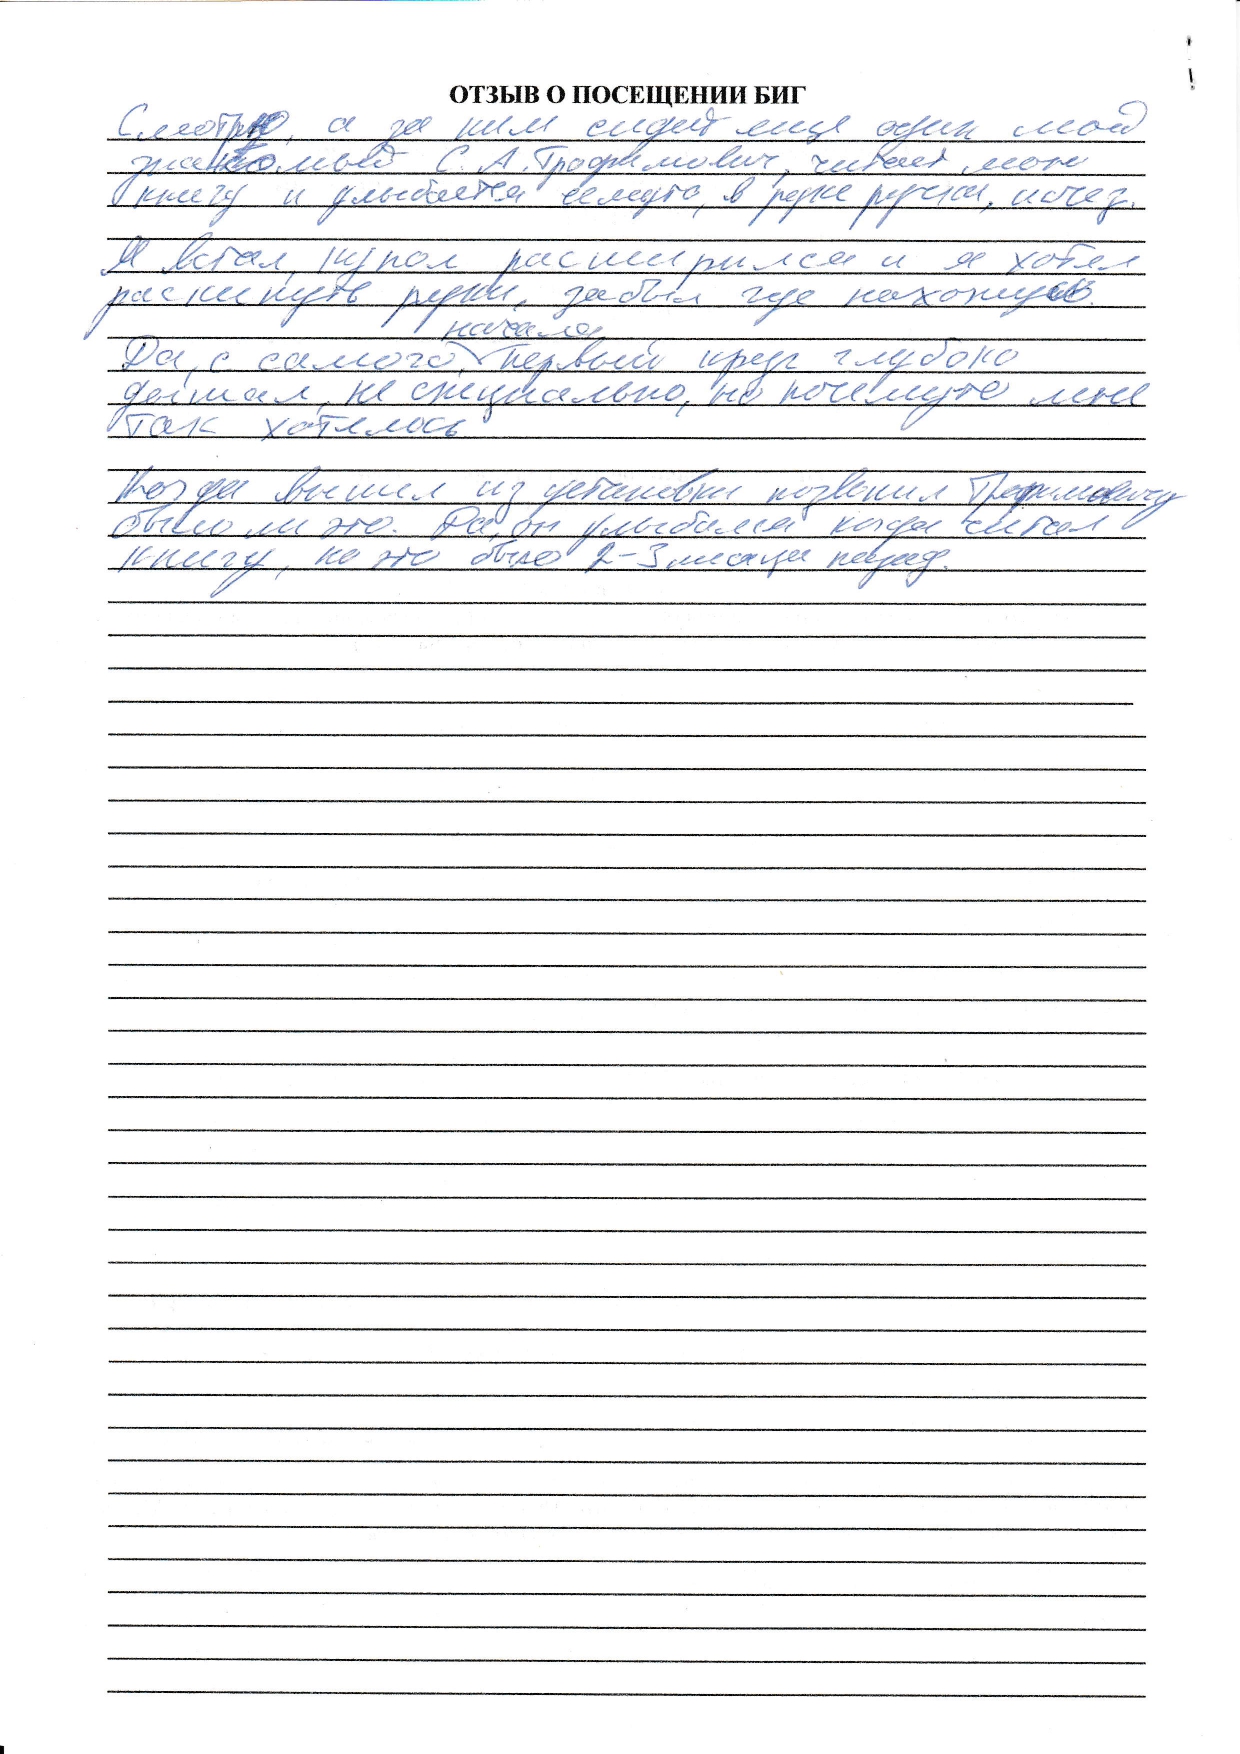 ОТЗЫВ О ПОСЕЩЕНИИ БИГ
Смотрю, а за ним сидит еще один мой
знакомый С. А. Трофимович, читает мою
книгу и улыбается чемуто, в руке ручка, исчез.
Я встал, купол расширился и я хотел
раскинуть руки, забыл где нахожусь
начала
Да, с самого, первый круг глубоко
дышал, не специально, но почемуто мне
так хотелось
Когда вышел из установки позвонил Трофимовичу
было ли это. Да, он улыбался когда читал
книгу, но это было 2-3 месяца назад.